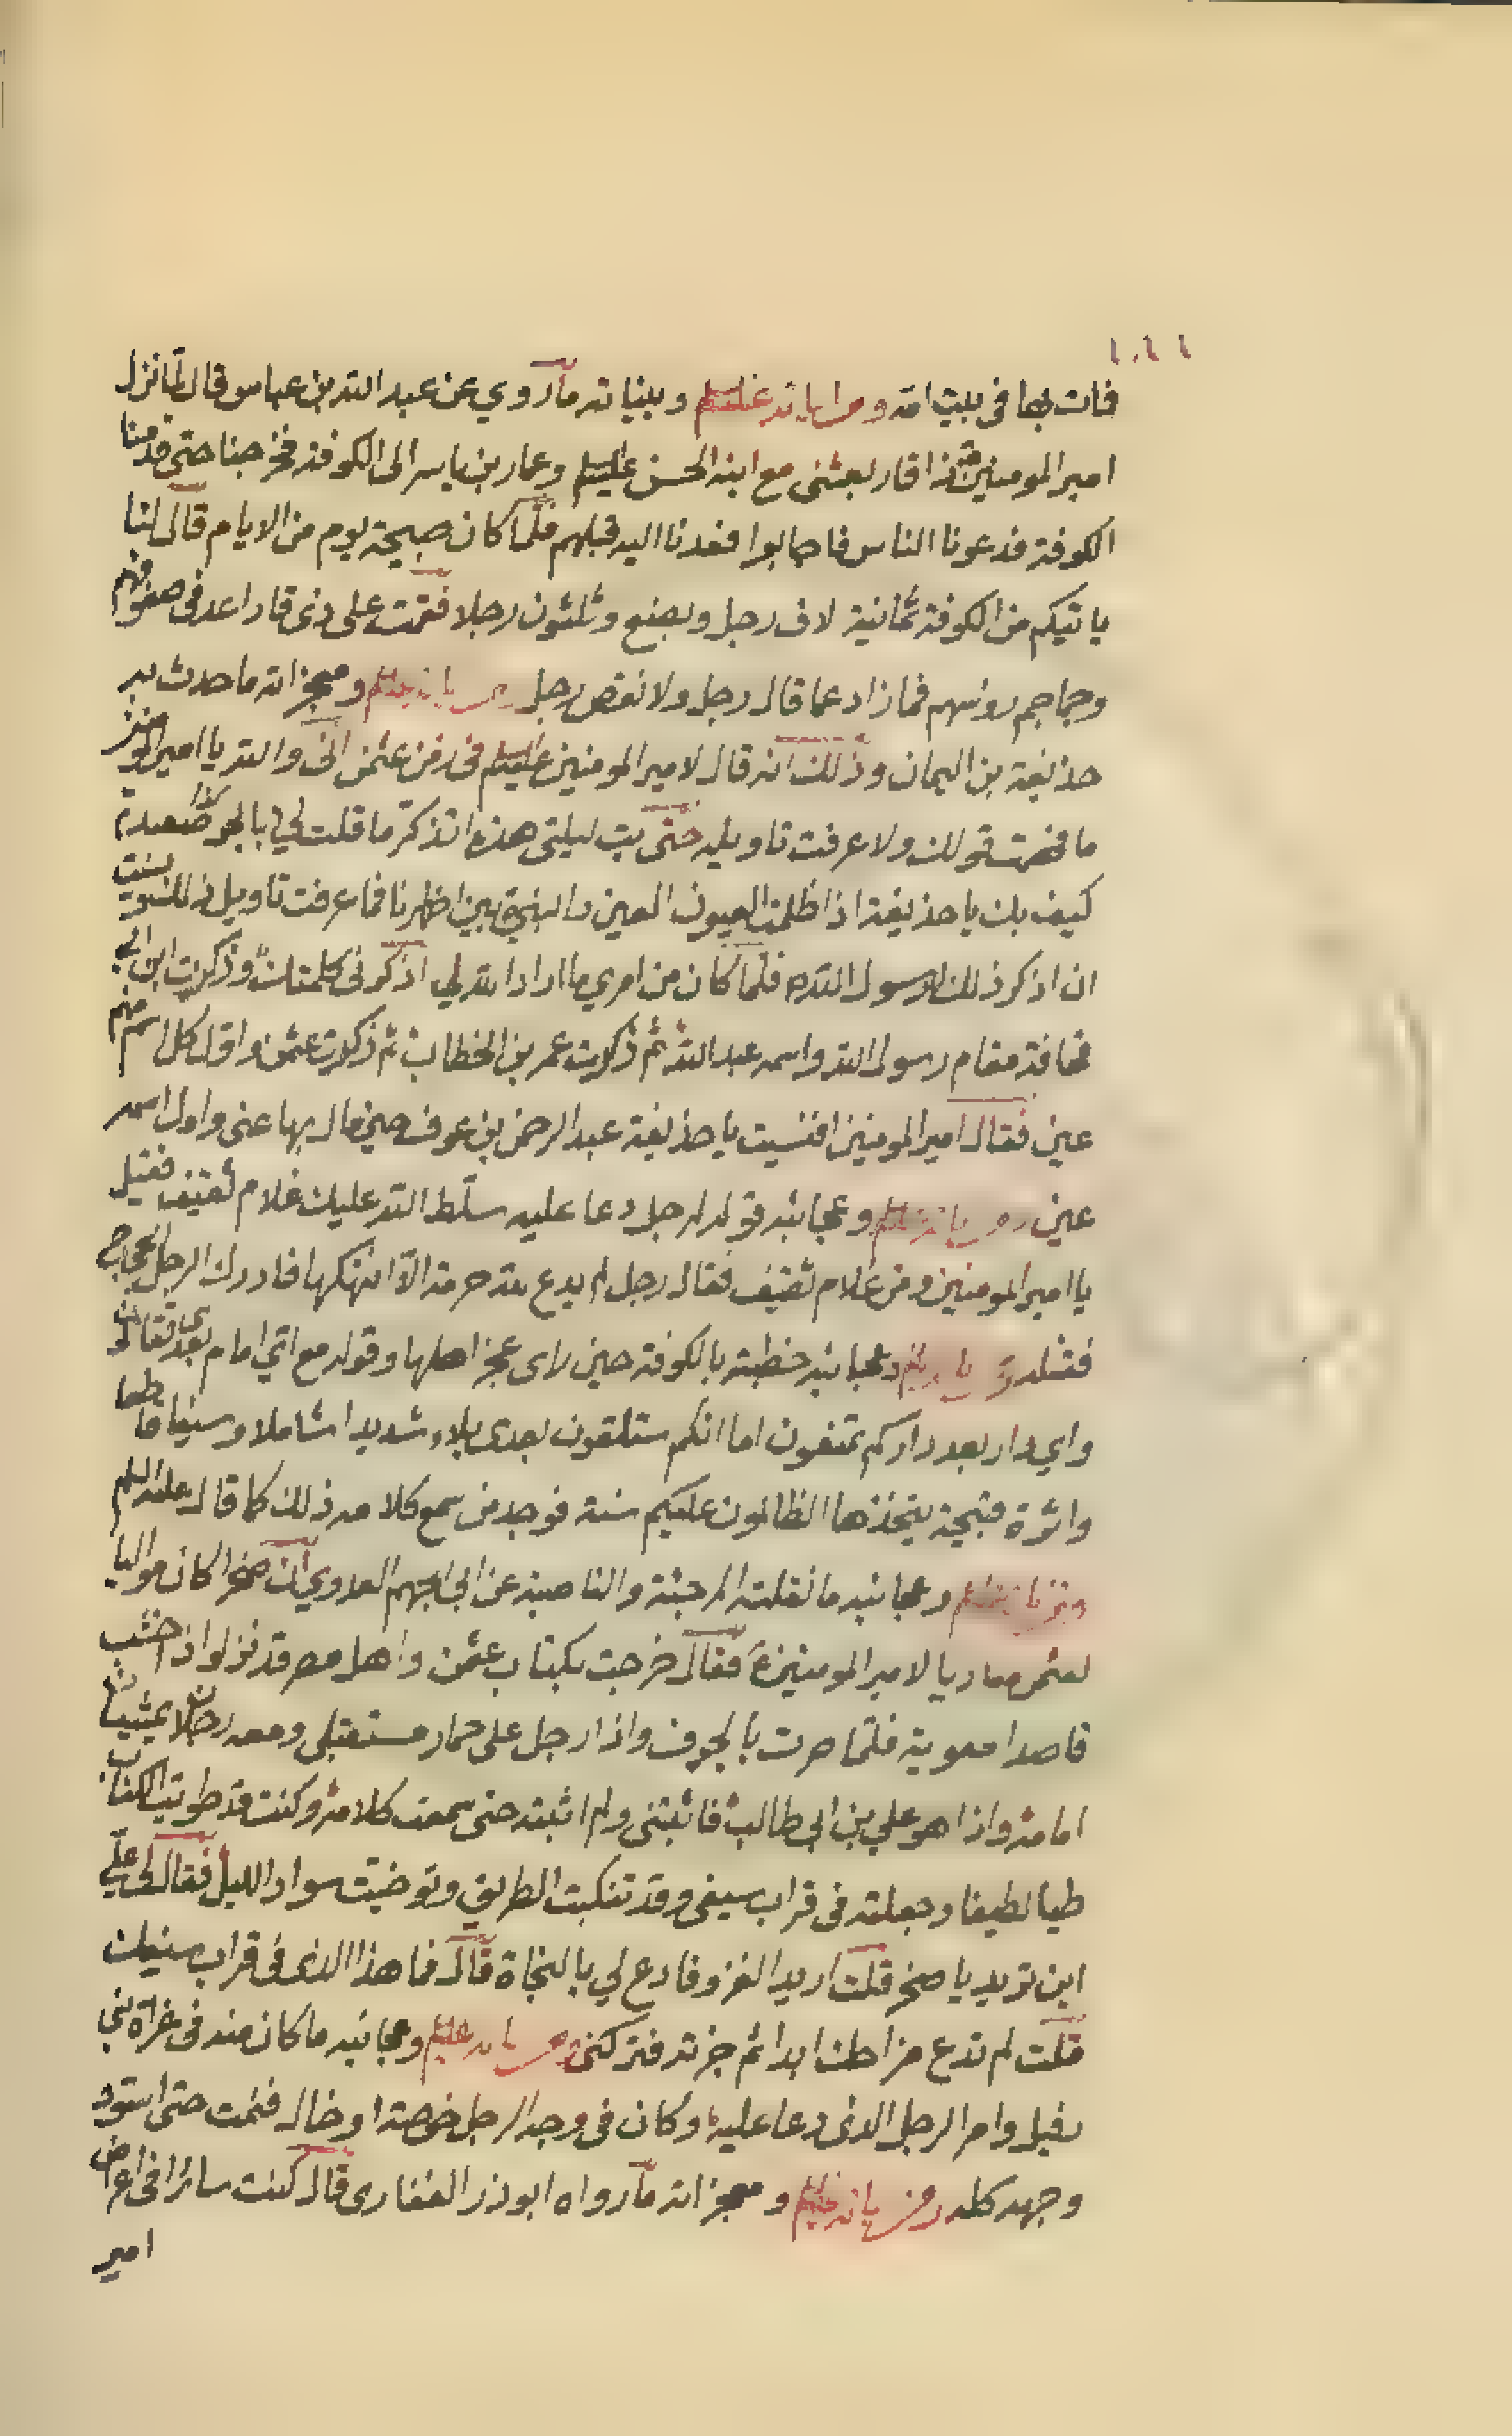 فمات بها في بيت امه ومن اياته عليه السلم وبيناته ما روي عن عبد الله بن عباس قال لما نزل
امير المومنين ذا قار بعثنى مع ابنه الحسن عليه السلم وعمار بن ياسر الى الكوفة فخرجنا حتى قدمنا
الكوفة فدعونا الناس فاجابوا فغدنا اليه قبلهم فلما كان صبيحة يوم من الايام قال لنا
ياتيكم من الكوفة ثمانية لاف رجل وبضع وثلثون رجلا فقمت على ذى قار اعد فى صفوفهم
وجماجم روسهم فما زاد عما قال رجل ولا نقص رجل ومعجزاته ما حدث به
حذيفة بن اليمان وذلك انه قال لامير المومنين عليه السلم فى زمن عثمن انى والله يا امير المومنين
ما فهمت قولك ولا عرفت تاويله حتى بت ليلتى هذه اتذكر ما قلت لي بالحرة
كيف بك يا حذيفة اذا ظلمت العيون العين والنبي بين اظهرنا فما عرفت تاويل ذلك ونسيت
ان اذكر ذلك لرسول الله فلما كان من امري ما اراد الله لي اذكرنى كلمتك وذكرت ابن ابي
قحافة مقام رسول الله واسمه عبد الله ثم ذكرت عمر بن الخطاب ثم ذكرت عثمن واول كل اسم منهم
عين فقال امير المومنين افنسيت يا حذيفة عبد الرحمن بن عوف حين مال بها عنى واول اسمه
عين وعجائبه قوله لرجل دعا عليه سلط الله عليك غلام ثقيف فقيل
يا امير المومنين ومن غلام ثقيف فقال رجل لم يدع لله حرمة الا انتهكها فادرك الرجل الحجاج
فقتله وعجائبه خطبته بالكوفة حين راى عجز اهلها وقوله مع اي امام بعدى تقاتلون
واي دار بعد داركم تمنعون اما انكم ستلقون بعدى بلاء شديدا شاملا وسيفا قاطعا
واثرة قبيحة يتخذها الظالمون عليكم سنة فوجد من سمع كلامه ذلك كما قال عليه السلم
وعجائبه ما نقلته المرجئة والناصبة عن ابى الجهم العدوي ان صخرا كان مواليا
لعثمن معاديا لامير المومنين فقال خرجت بكتاب عثمن واهل مصر قد نزلوا ذا خشب
قاصدا معوية فلما صرت بالجوف واذا رجل على حمار مستقبلى ومعه رجلان يمشيان
امامه واذا هو علي بن ابى طالب فاثبتنى ولم اثبته حتى سمعت كلامه وكنت قد طويت الكتاب
طيا لطيفا وجعلته فى قراب سيفى وقد تنكبت الطريق وتوخيت سواد الليل فقال لى علي
اين تريد يا صخر قلت اريد الغزو فادع لي بالنجاة قال فما هذا الذى فى قراب سيفك
قلت لم تدع مزاحك ابدا ثم جزته فتركنى وعجائبه ما كان منه فى غزاة بني
وامر الرجل الذى دعا عليه وكان فى وجه الرجل او خال فنمت حتى اسود
وجهه كله ومن اياته عليه السلم ومعجزاته ما رواه ابو ذر الغفارى قال كنت سائرا فى اعراض
امير